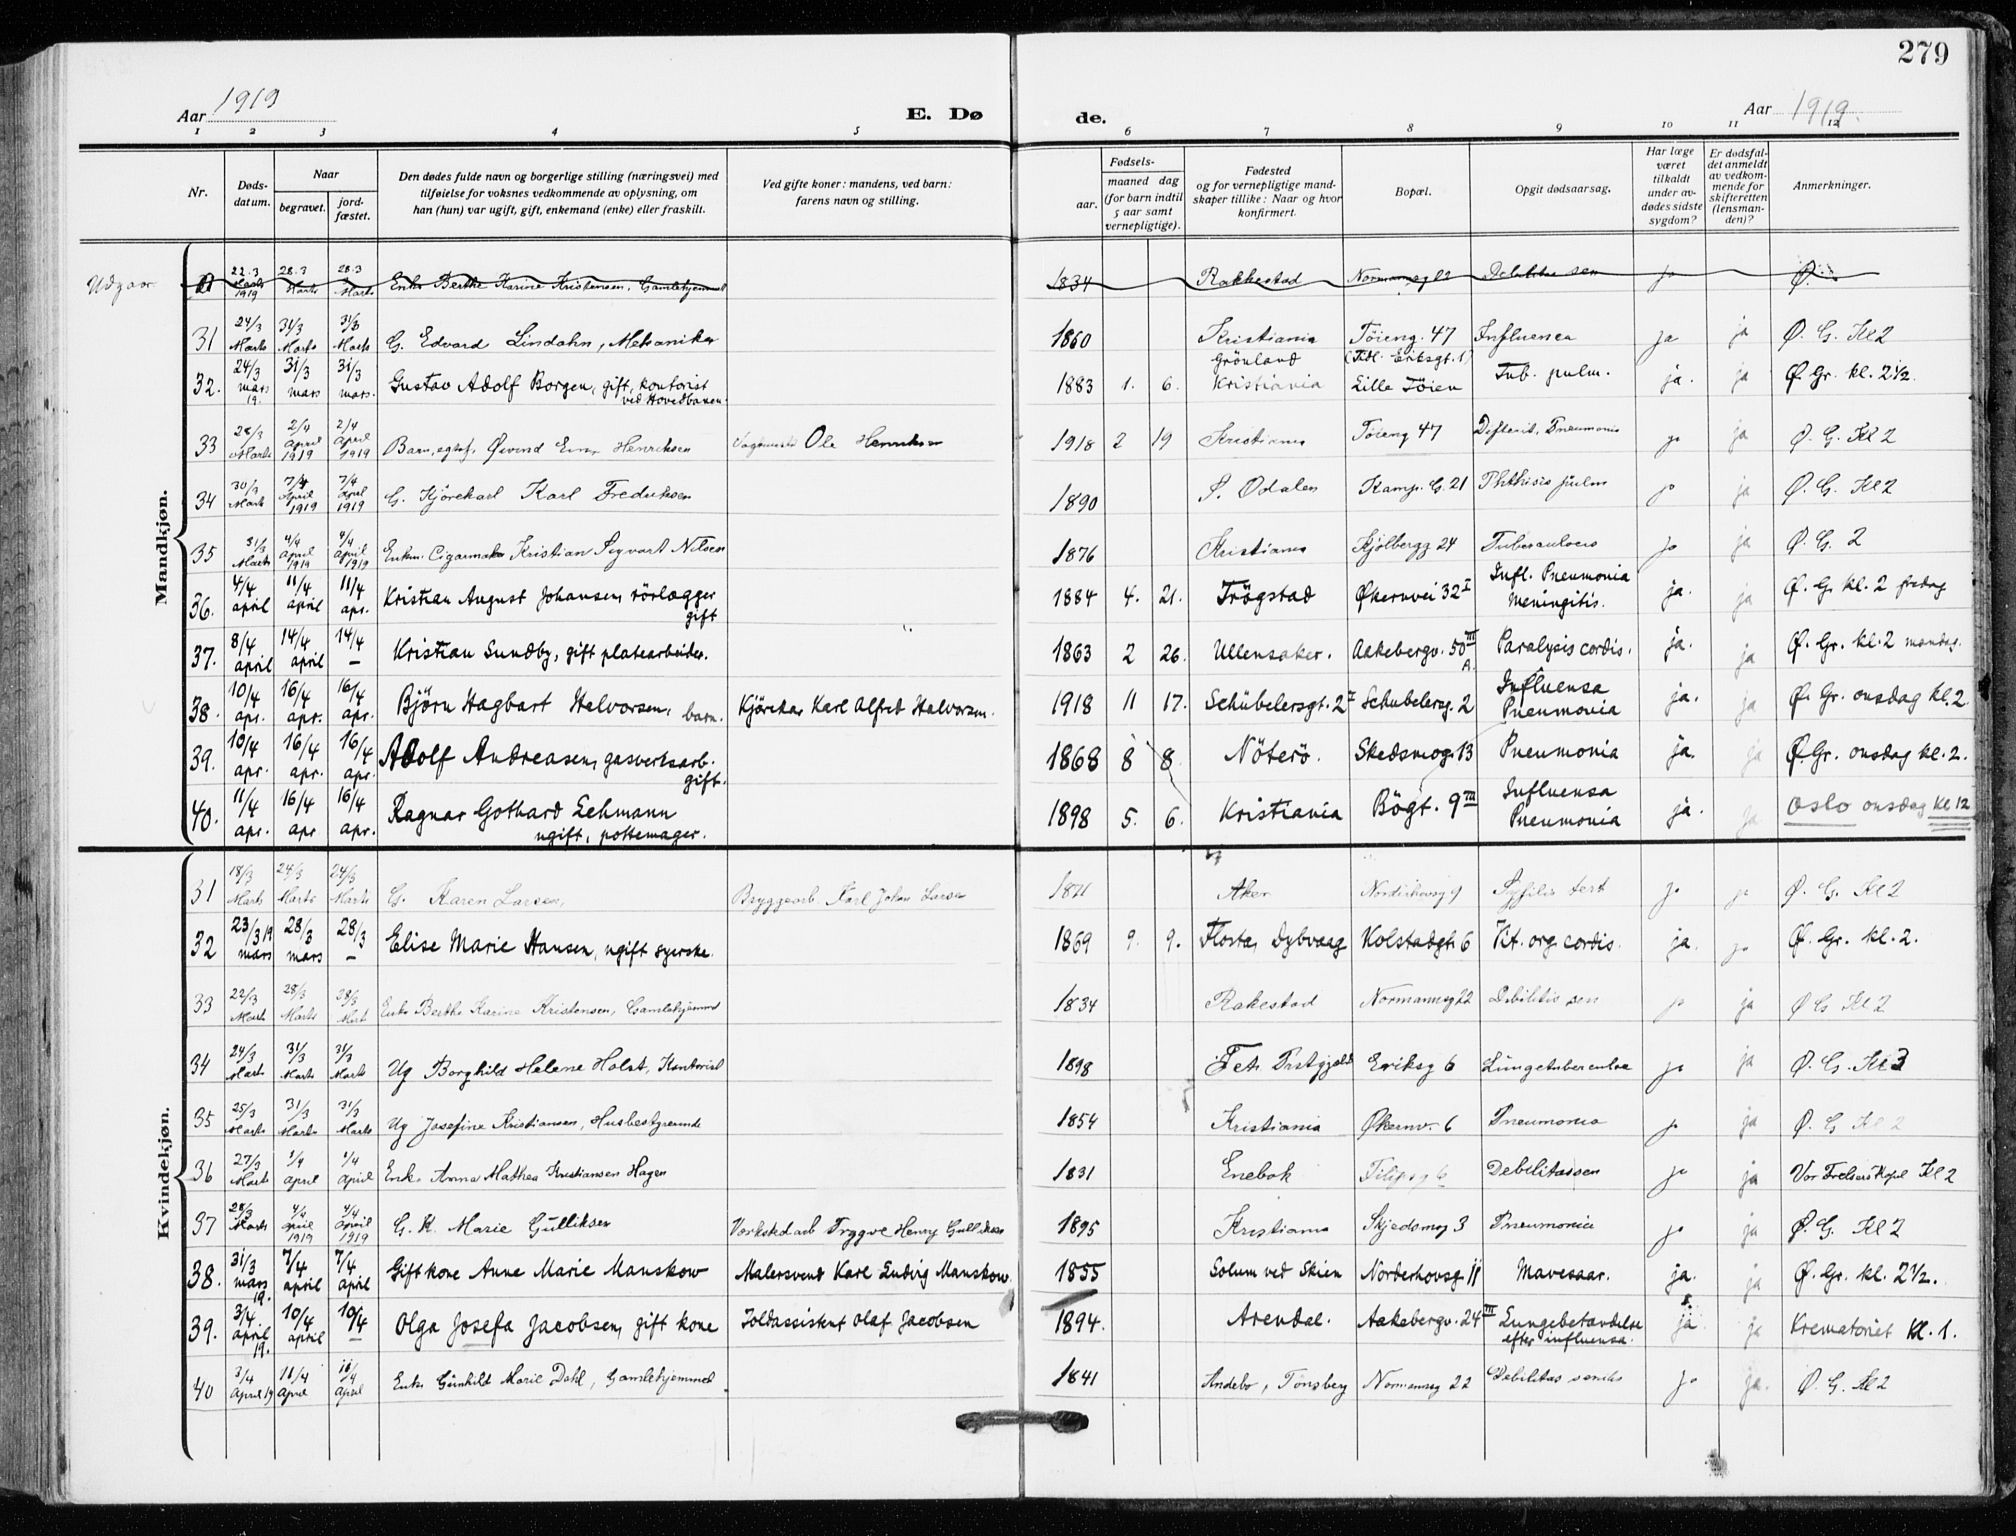 279
Aar 1919
E. Dø
de.
Aar 1919.
1 2 3 4 5 6 7 8 9 10 11 12
Nr.
Døds-
datum.
Naar
begravet.
jord-
fæstet.
Den dødes fulde navn og borgerlige stilling (næringsvei) med
tilføielse for voksnes vedkommende av oplysning, om
han (hun) var ugift, gift, enkemand (enke) eller fraskilt.
Ved gifte koner: mandens, ved barn:
farens navn og stilling.
Fødsels-
aar.
maaned dag
(for barn indtil
5 aar samt
vernepligtige).
Fødested
og for vernepligtige mand-
skaper tillike: Naar og hvor
konfirmert.
Bopæl.
Opgit dødsaarsag.
Har læge
været
tilkaldt
under av-
dødes sidste
sygdom?
Er dødsfal-
det anmeldt
av vedkom-
mende for
skifteretten
(lensman-
den)?
Anmerkninger.
Mandkjøn.
Udgaar 22.3 Marts 1919 28.3 Marts 28.3 Marts Enke Berthe Karine Kristensen, Gamlehjemmet 1834 Rakkestad Normannsg 22 Debilitas sen ja Ø.
31 24/3 Marts 31/3 Marts 31/3 Marts G. Edvard Lindahn, Mekaniker 1860 Kristiania Töieng. 47 Influensa ja ja Ø. G. Kl 2
32. 24/3 mars 19. 31/3 mars 31/3 mars. Gustav Adolf Borgen, gift, kontorist ved Hovedbanen. 1883 1. 6. Grönland Kristiania (Tidl. Eriksgt. 1) Lille Töien Tub. pulm. ja. ja Ø. Gr. kl. 2 1/2.
33 28/3 Marts 2/4 April 1919 2/4 April 1919 Barn, egtef. Øivind Henriksen Ole Henriksen 1918 2 19 Kristiania Töieng 47 Difterit, Pneumonia ja ja Ø. G. Kl 2
34 30/3 Marts 7/4 April 1919 7/4 April 1919 G. Kjörekarl Karl Fredriksen 1890 S. Odalen Kamp. G. 21 Phthisis pulm ja ja Ø. G. Kl 2
35 31/3 Marts 4/4 April 1919 4/4 April 1919 Enkm. Cigarmaker Kristian Sigvart Nilsen 1876 Kristiania Kjölbergg 24 Tuberculosis ja ja Ø. G. 2
36. 4/4 april 11/4 april 11/4 apr. Kristian August Johansen, rörlægger gift 1884 4. 21. Trögstad Økernvei 32 I Infl. Pneumonia Meningitis. ja. ja Ø. G. kl. 2 fredag
37. 8/4 april 14/4 april 14/4 — Kristian Sundby, gift platearbeider. 1863 2 26. Ullensaker. Aakebergv. 50 III A. Paralysis cordis. ja. ja Ø. Gr. kl. 2 mandag.
38. 10/4 apr. 16/4 apr. 16/4 apr. Björn Hagbart Halvorsen, barn. Kjörekar Karl Alfred Halvorsen. 1918 11 17. Schübelersgt. 2 I Schubelersg. 2 Influensa Pneumonia ja. ja Ø. Gr. onsdag kl. 2.
39. 10/4 apr. 16/4 apr. 16/4 apr. Adolf Andreasen, gasverksarb. gift. 1868 8 8 Nöterö. Skedsmog. 13 Pneumonia ja. ja Ø. Gr. onsdag kl. 2.
40. 11/4 apr. 16/4 apr 16/4 apr. Ragnar Gothard Lehmann ugift, pottemager. 1898 5. 6. Kristiania Bögt. 9 III Influensa Pneumonia ja. ja Oslo onsdag kl 12
Kvindekjøn.
31 18/3 Marts 24/3 Marts 24/3 Marts G. Karen Larsen, Bryggearb. Karl Johan Larsen 1871 Aker Nordrehovsg 9 Syfilis tert ja ja Ø. G. Kl 2
32 23/3 19 mars 28/3 mars 28/3 — Elise Marie Hansen, ugift syerske. 1869 9. 9. Flosta, Dybvaag Kolstadgt. 6 Vit. org cordis. ja. ja Ø. Gr. kl. 2.
33 22/3 Marts 28/3 Marts 28/3 Mart Enke Berthe Karine Kristensen, Gamlehjemmet 1834 Rakestad Normannsg 22 Debilitis sen ja ja Ø G Kl 2
34 24/3 Marts 31/3 Marts 31/3 Marts Ug Borghild Helene Holst, Kontorist 1898 Fet Prstgjeld Eriksg 6 Lungetuberculose ja ja Ø. G. Kl 3
35 25/3 Marts 31/3 Marts 31/3 Marts Ug Josefine Kristiansen, Husbestyrerinde 1854 Kristiania Økernv. 6 Pneumonia ja ja Ø. G Kl 2
36 27/3 Marts 1/4 April 1/4 April Enke Anna Mathea Kristiansen Hagen 1831 Enebok Filipsg 6 Debilitas sen ja ja Vor Frelsers Kapel Kl 2
37 28/3 Marts 4/4 April 1919 4/4 April 1919 G. K. Marie Gulliksen Verkstedarb Tryggve Henry Gulliksen 1895 Kristiania Skjedsmog 3 Pneumonia ja ja Ø. G. Kl 2
38. 31/3 mars 19. 7/4 april 7/4 april Gift kone Anne Marie Manskow Malersvend Karl Ludvig Manskow. 1855 Solum ved Skien Norderhovsg. 11 Mavesaar. ja. ja Ø. Gr. kl. 2 1/2.
39. 3/4. april 19. 10/4 april 10/4 — Olga Josefa Jacobsen, gift kone Toldassistent Olaf Jacobsen 1894. Arendal. Aakebergv. 24 III Lungebetændelse efter influensa. ja. ja Krematoriet kl. 1.
40 3/4 April 19 11/4 April 11/4 April Enke Gunhild Marie Dahl, Gamlehjemmet 1841 Andebo, Tönsberg Normannsg 22 Debilitas senilis ja ja. Ø. G. Kl 2